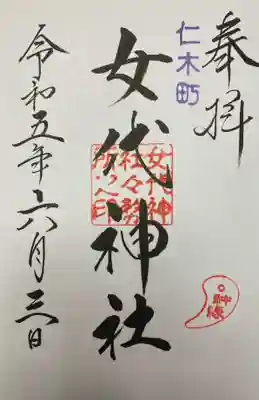 奉拝
仁木町
女代神社
女代神
社々務
所之印
神縁
令和五年六月三日